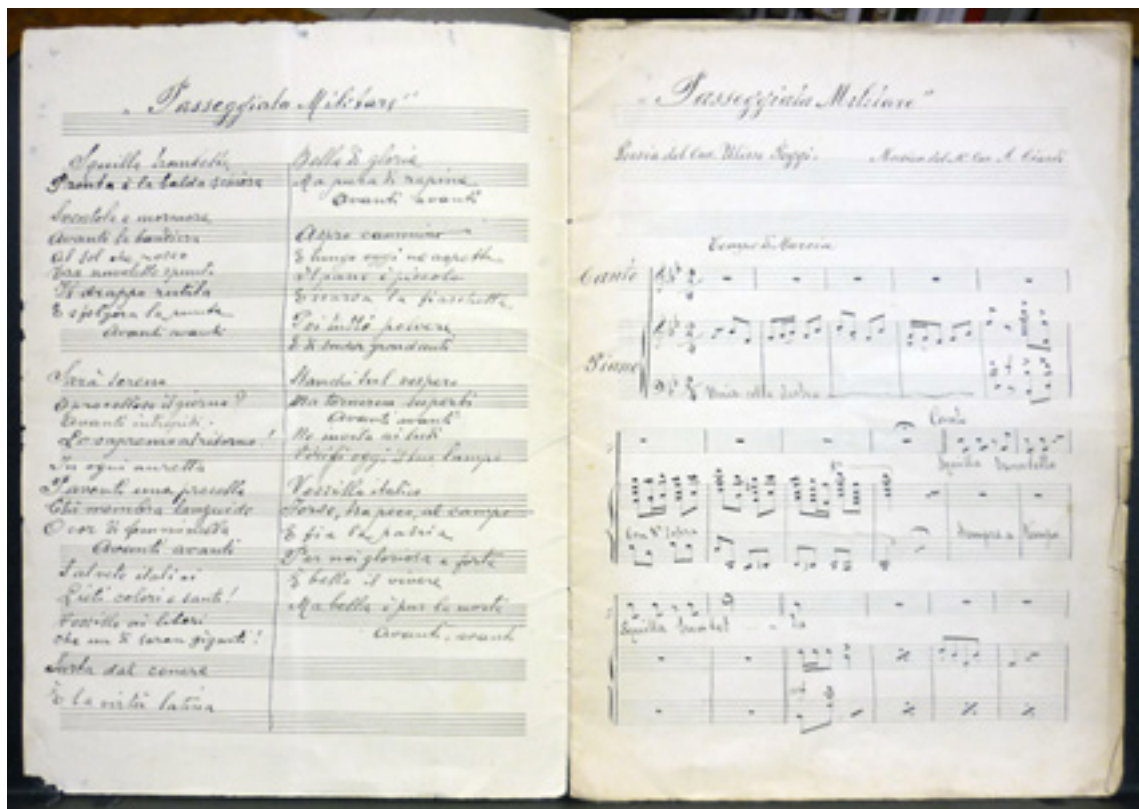 „Passeggiata Militare"
Squilla trombetta
Pronta è la balda schiera
Sventola e mormora
Avanti la bandiera
Al sol che rosso
Tra nuvolette spunta
Il drappo rutila
E sfolgora la punta
Avanti avanti
Sarà sereno
O procelloso il giorno?
Avanti intrepidi.
Lo sapremo al ritorno!
In ogni auretta
Paventi una procella
Chi membra languide
O cor di femminella
Avanti avanti
Salvete itali ai
Lieti colori e santi!
Vessillo ai
che un dì saran giganti!
Surta dal cenere
È la virtù latina
Bella di gloria
Ma pura di rapina
Avanti avanti
Aspro cammino
E lungo oggi ne aspetta
Il pane è piccolo
E scarsa la fiaschetta
Poi tutto polvere
E di sudor grondanti
Stanchi sul vespero
Ma torneremo
Avanti avanti
No
oggi il tuo lampo
Vessillo italico
Forse, tra poco, al campo
E fia la patria
Per noi gloriosa e forte
È bello il vivere
Ma bella è pur la morte
Avanti, avanti
„Passeggiata Militare"
Poesia del Cav. Ulisse Poggi. Musica del Mº Cav. A. Ciardi
Tempo di Marcia
Canto
Piano
Canto
Squilla trombetta
Sempre a Tempo
Squilla trombet - - ta